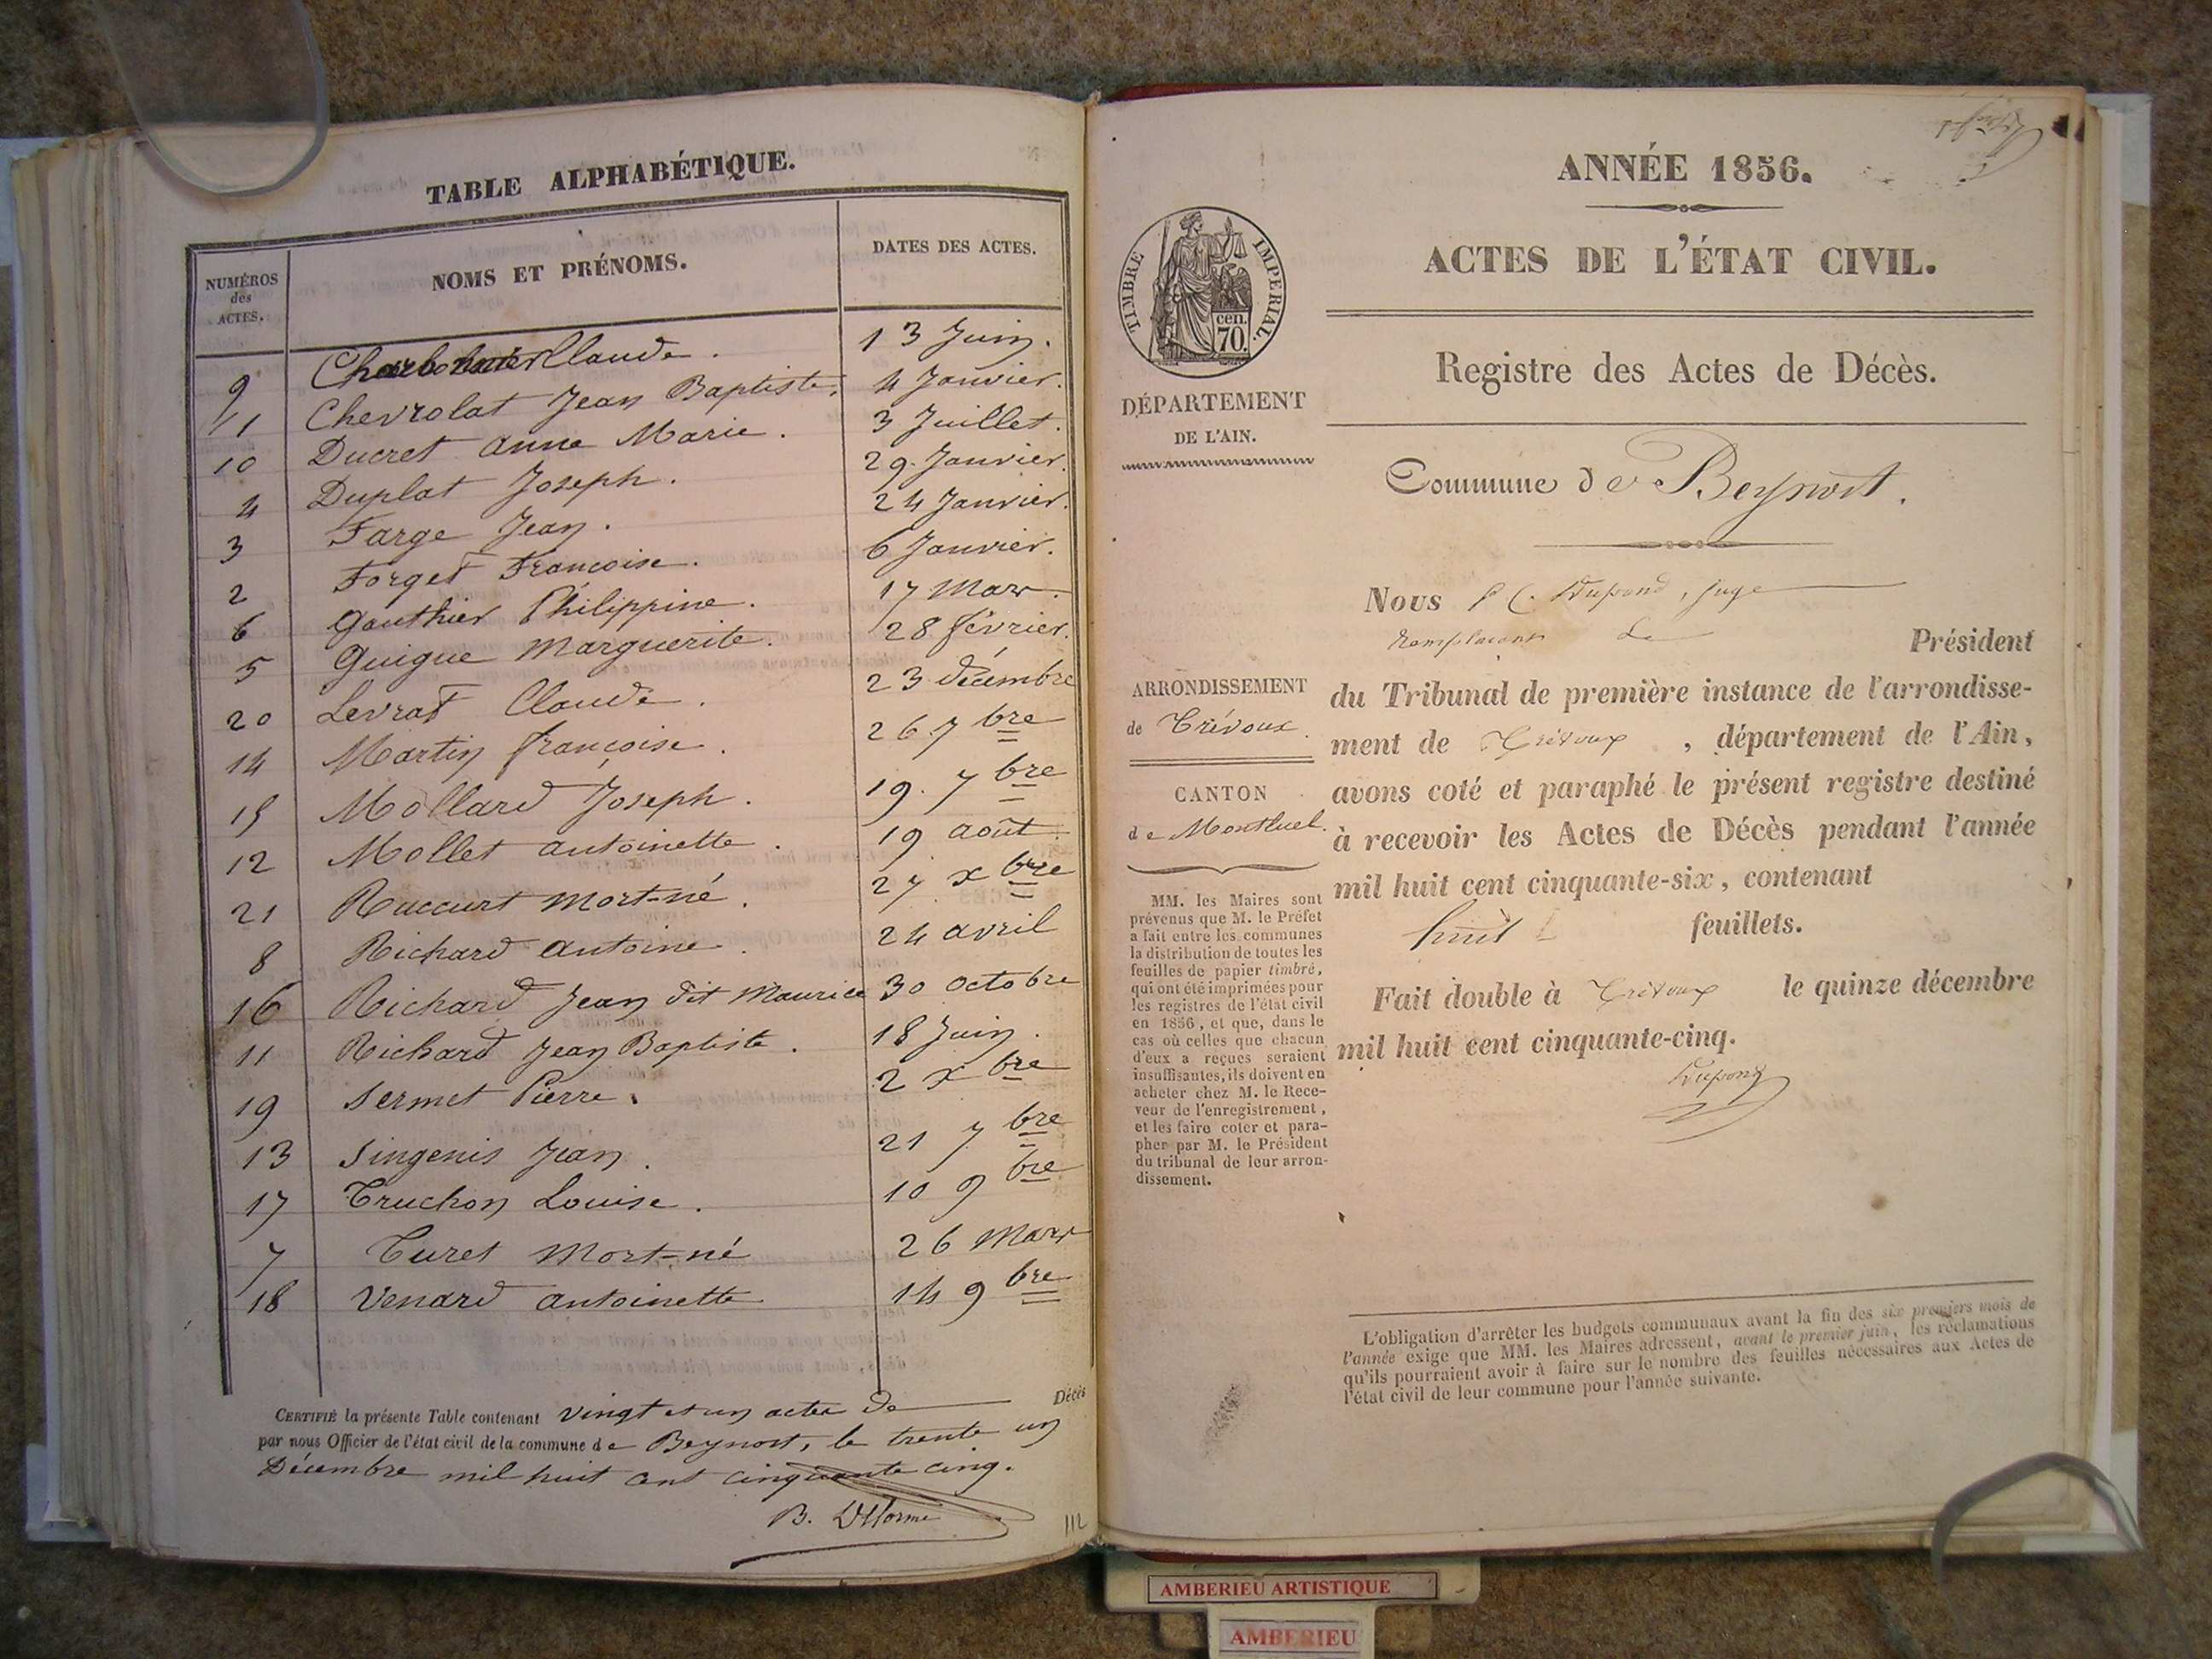 TABLE ALPHABÉTIQUE.
NUMÉROS
des
ACTES.
NOMS ET PRÉNOMS.
DATES DES ACTES.
9 Charbonnier Claude. 13 Juin.
1 Chevrolat Jean Baptiste. 4 Janvier.
10 Ducret anne Marie. 3 Juillet.
4 Duplat Joseph. 29. Janvier.
3 Farge Jean. 24 Janvier.
2 Forget Francoise. 6 Janvier.
6 Gauthier Philippine. 17 Mars.
5 Guigue Marguerite. 28 février.
20 Levrat Claude. 23 décembre
14 Martin françoise. 26. 7bre
15 Mollard Joseph. 19. 7bre
12 Mollet antoinette. 19 août.
21 Raccurt mort-né. 27 xbre
8 Richard antoine. 24 avril
16 Richard Jean dit Maurice 30 octobre
11 Richard Jean Baptiste. 18 Juin.
19 Sermet Pierre. 2 xbre
13 Singenis Jean. 21 7bre
17 Truchon Louise. 10 9bre
7 Turet Mort-né 26 Mars
18 Venard antoinette 14 9bre
CERTIFIÉ la présente Table contenant vingt et un actes de Décès
par nous Officier de l'état civil de la commune de Beynost, le trente un
Décembre mil huit cent cinquante cinq.
B. Delorme
112
ANNÉE 1856.
ACTES DE L'ÉTAT CIVIL.
TIMBRE IMPERIAL.
cen.
70.
Registre des Actes de Décès.
DÉPARTEMENT
DE L'AIN.
Commune de Beynost.
Nous Dupond, Juge
Remplaçant Le Président
du Tribunal de première instance de l'arrondisse-
ment de Trévoux, département de l'Ain,
avons coté et paraphé le présent registre destiné
à recevoir les Actes de Décès pendant l'année
mil huit cent cinquante-six, contenant
huit feuillets.
Fait double à Trévoux le quinze décembre
mil huit cent cinquante-cinq.
Dupond
ARRONDISSEMENT
de Trévoux.
CANTON
de Montluel.
MM. les Maires sont
prévenus que M. le Préfet
a fait entre les communes
la distribution de toutes les
feuilles de papier timbré,
qui ont été imprimées pour
les registres de l'état civil
en 1856, et que, dans le
cas où celles que chacun
d'eux a reçues seraient
insuffisantes, ils doivent en
acheter chez M. le Rece-
veur de l'enregistrement,
et les faire coter et para-
pher par M. le Président
du tribunal de leur arron-
dissement.
L'obligation d'arrêter les budgets communaux avant la fin des six premiers mois de
l'année exige que MM. les Maires adressent, avant le premier juin, les réclamations
qu'ils pourraient avoir à faire sur le nombre des feuilles nécessaires aux Actes de
l'état civil de leur commune pour l'année suivante.
AMBERIEU ARTISTIQUE
AMBERIEU